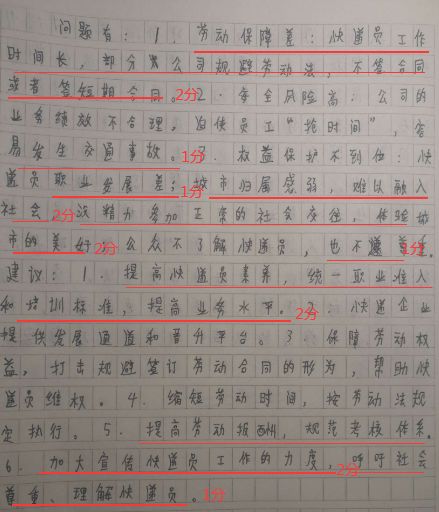 问题有：1. 劳动保障差：快递员工作
时间长，部分黑公司规避劳动法，不签合同
或者签短期合同。2分 2. 安全风险高：公司的
业务绩效不合理，迫使员工“抢时间”，容
易发生交通事故。1分 3. 权益保护不到位：快
递员职业发展差；1分 城市归属感弱，难以融入
社会；2分 没精力参加正常的社会交往，体验城
市的美好；2分 公众不了解快递员，也不懂尊重
建议：1. 提高快递员素养，统一职业准入
和培训标准，提高业务水平。2分 2. 快递企业
提供发展通道和晋升平台。3. 保障劳动权
益，打击规避签订劳动合同的形为，帮助快
递员维权。4. 缩短劳动时间，按劳动法规
定执行。5. 提高劳动报酬，规范考核体系。
6. 加大宣传快递员工作的力度，2分 呼吁社会
尊重、理解快递员。1分